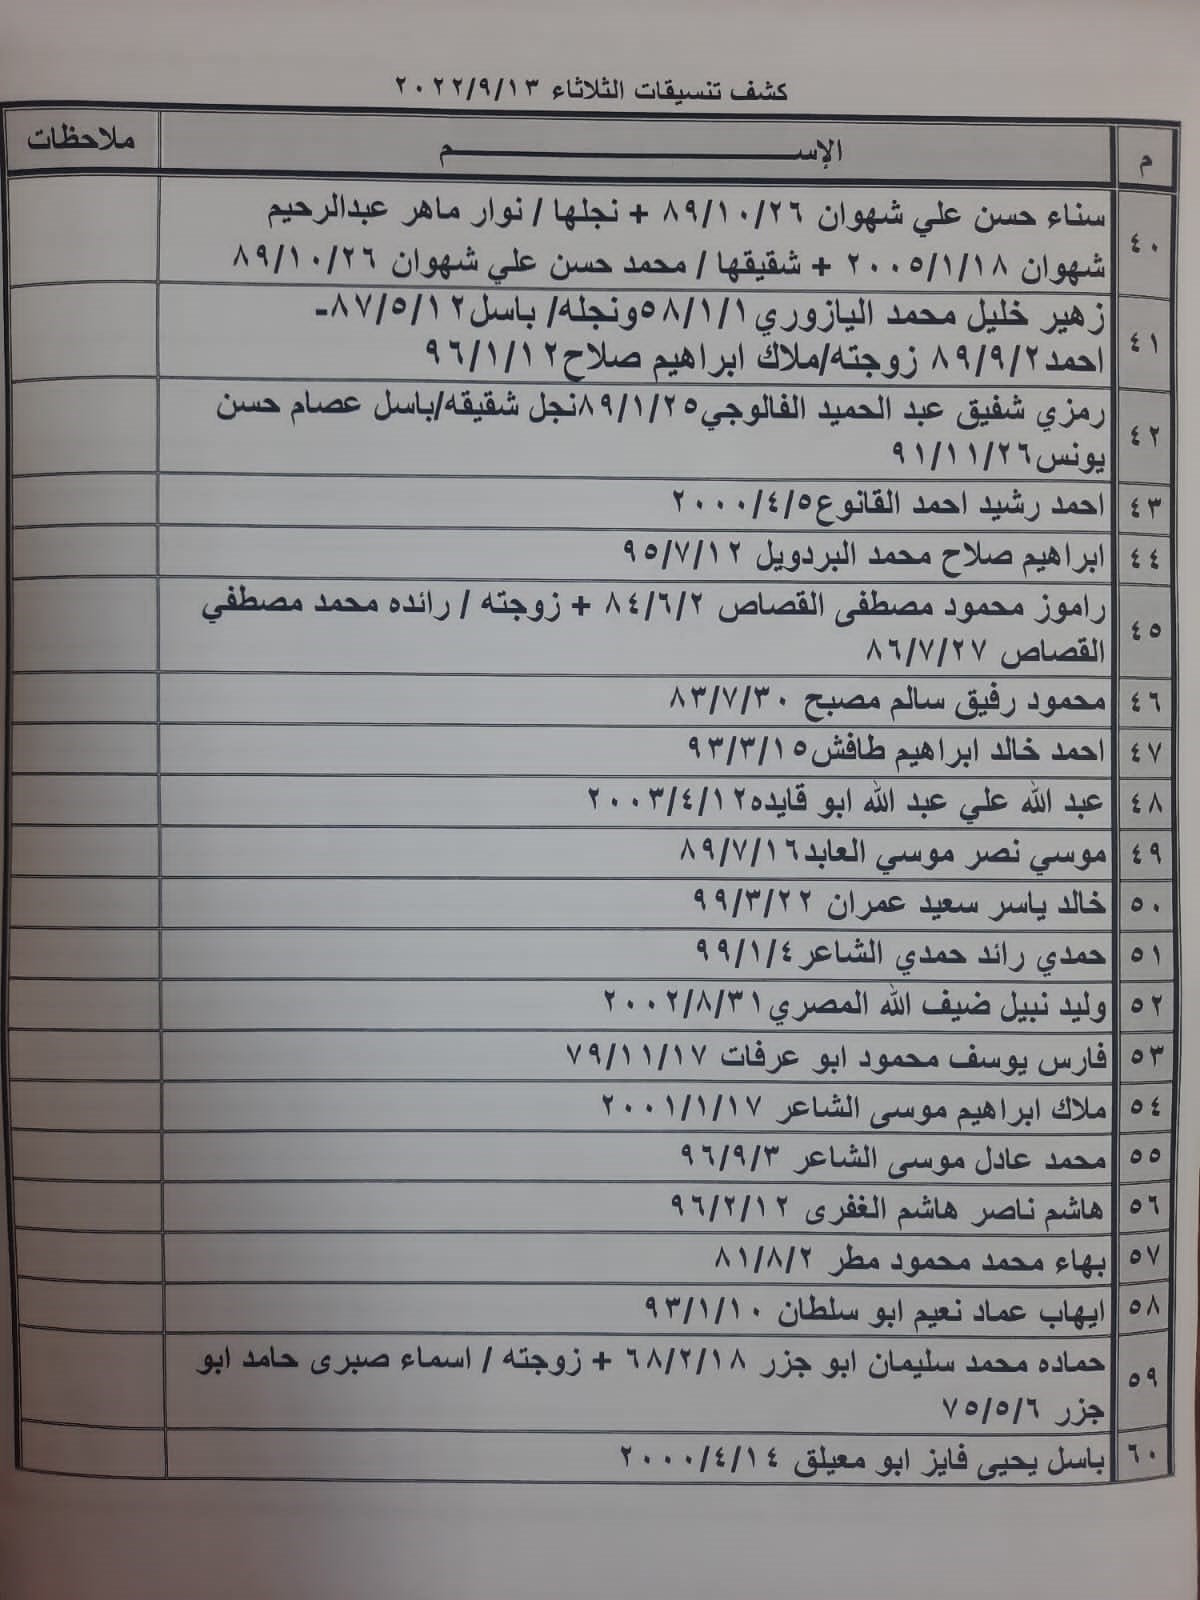 كشف تنسيقات الثلاثاء ٢٠٢٢/٩/١٣
م الإســـــــــم ملاحظات
٤٠ سناء حسن علي شهوان ٨٩/١٠/٢٦ + نجلها / نوار ماهر عبدالرحيم
شهوان ٢٠٠٥/١/١٨ + شقيقها / محمد حسن علي شهوان ٨٩/١٠/٢٦
٤١ زهير خليل محمد اليازوري٥٨/١/١ونجله/ باسل٨٧/٥/١٢-
احمد٨٩/٩/٢ زوجته/ملاك ابراهيم صلاح٩٦/١/١٢
٤٢ رمزي شفيق عبد الحميد الفالوجي٨٩/١/٢٥نجل شقيقه/باسل عصام حسن
يونس٩١/١١/٢٦
٤٣ احمد رشيد احمد القانوع٢٠٠٠/٤/٥
٤٤ ابراهيم صلاح محمد البردويل ٩٥/٧/١٢
٤٥ راموز محمود مصطفى القصاص ٨٤/٦/٢ + زوجته / رائده محمد مصطفي
القصاص ٨٦/٧/٢٧
٤٦ محمود رفيق سالم مصبح ٨٣/٧/٣٠
٤٧ احمد خالد ابراهيم طافش٩٣/٣/١٥
٤٨ عبد الله علي عبد الله ابو قايده٢٠٠٣/٤/١٢
٤٩ موسي نصر موسي العابد٨٩/٧/١٦
٥٠ خالد ياسر سعيد عمران ٩٩/٣/٢٢
٥١ حمدي رائد حمدي الشاعر٩٩/١/٤
٥٢ وليد نبيل ضيف الله المصري٢٠٠٢/٨/٣١
٥٣ فارس يوسف محمود ابو عرفات ٧٩/١١/١٧
٥٤ ملاك ابراهيم موسى الشاعر ٢٠٠١/١/١٧
٥٥ محمد عادل موسى الشاعر ٩٦/٩/٣
٥٦ هاشم ناصر هاشم الغفرى ٩٦/٢/١٢
٥٧ بهاء محمد محمود مطر ٨١/٨/٢
٥٨ ايهاب عماد نعيم ابو سلطان ٩٣/١/١٠
٥٩ حماده محمد سليمان ابو جزر ٦٨/٢/١٨ + زوجته / اسماء صبرى حامد ابو
جزر ٧٥/٥/٦
٦٠ باسل يحيى فايز ابو معيلق ٢٠٠٠/٤/١٤